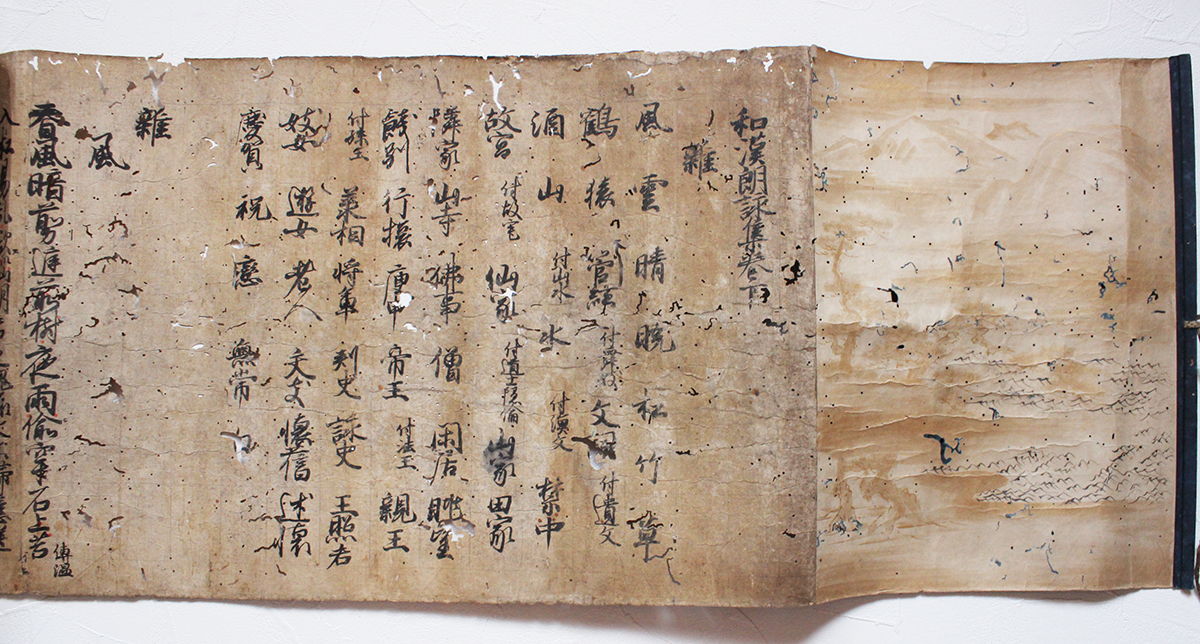 和漢朗詠集巻下
雜
風 雲 晴 暁 松 竹 草
鶴 猿 管絃 付舞妓 文詞 付遺文
酒 山 付山水 水 付漁父 禁中
故宮 付故宅 仙家 付道士隠倫 山家 田家
隣家 山寺 佛事 僧 閑居 眺望
餞別 行旅 庚申 帝王 付法王 親王
付孫王 丞相 将軍 刺史 詠史 王昭君
妓女 遊女 老人 交友 懐舊 述懐
慶賀 祝 戀 無常 白
雜
風
春風暗剪庭前樹夜雨偸穿石上苔 傅温